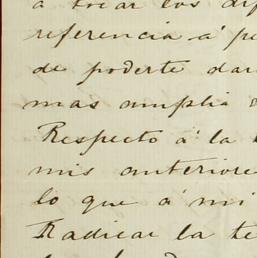 a tocar los dif
referencia á pe
de poderte dar
mas ampli
Respecto á la
mis anteriore
lo que á mi
Radicar la te